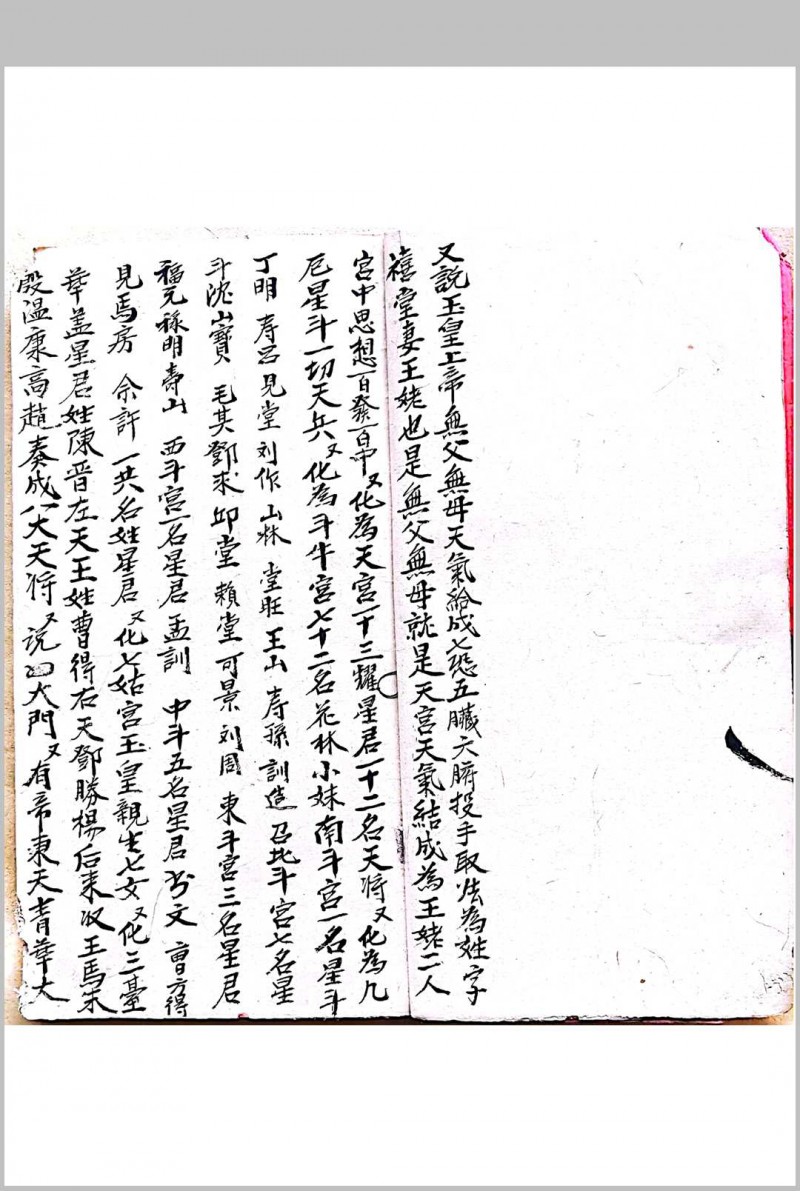 又説玉皇上帝無父無母天氣給成七孔五臟六腑投手取法為姓字
禧堂妻王姥也是無父無母就是天宮天氣結成為王姥二人
宮中思想一百發一百中又化為天宮一十三耀星君一十二名天将又化為九
厄星斗一切天兵又化為斗牛宮七十二名花林小妹南斗宮一名星斗
丁明 寿呂見堂 刘作 山林 堂旺 王山 寿孫 訓造 召北斗宮七名星
斗沈山寶 毛其鄧求 邱堂 賴堂 可景 刘周 東斗宮三名星君
福元祿明壽山 西斗宮一名星君 孟訓 中斗五名星君 文 曹方得
見馬房 余許 一共名姓星君又化七姑宮玉皇親生七女又化三臺
華盖星君姓陳晋左天王姓曹得右天鄧勝楊后来收王馬朱
殷温康高趙奏成八大天将又説四大門又有帝東天青華大